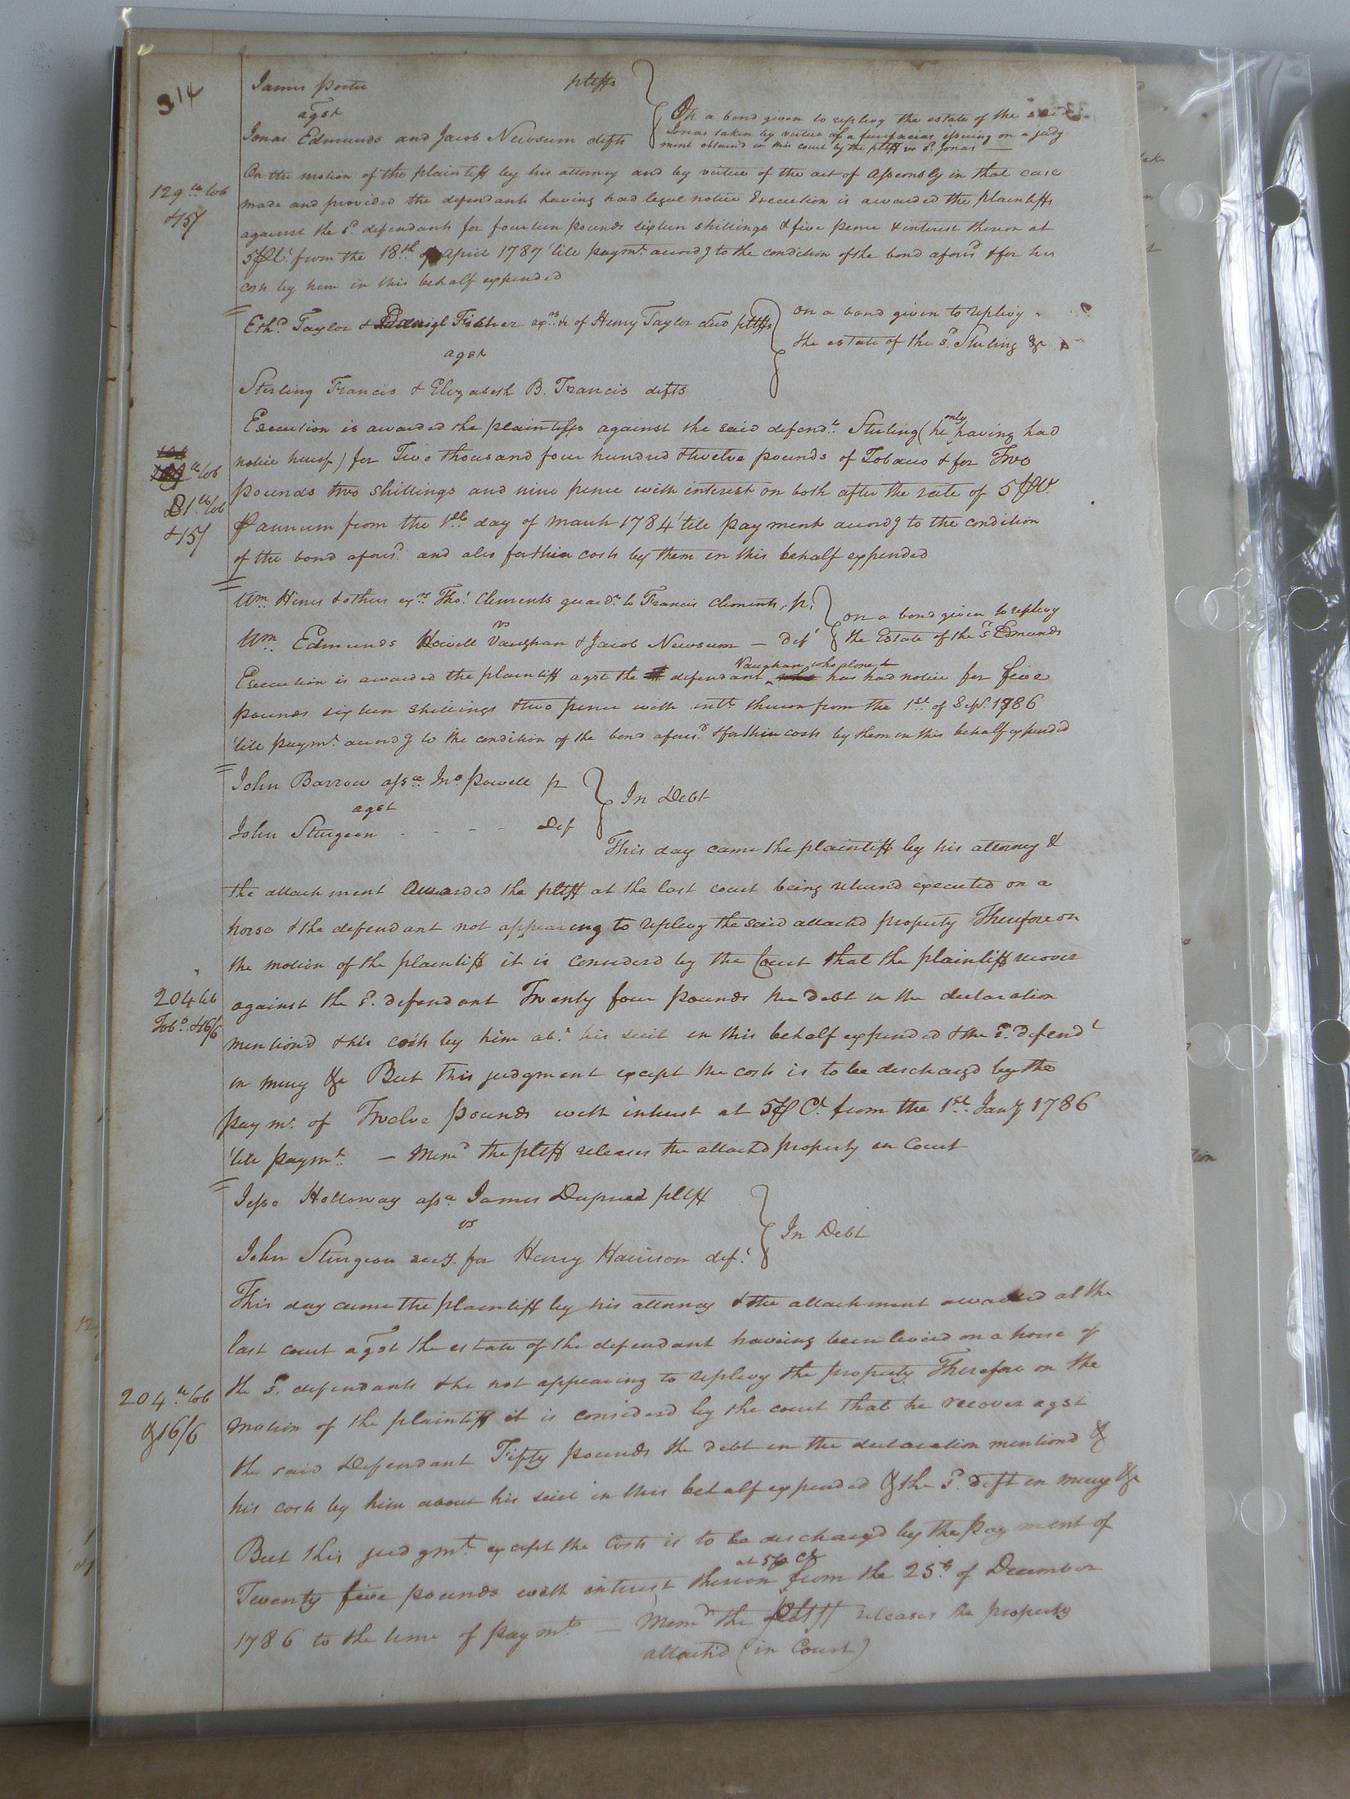 314
James Porter pltff
agst
Jonas Edmunds and Jacob Newsum defts
On a bond given to replevy the estate of the said
Jonas taken by virtue of a fierifacias issuing on a judg
ment obtained in this court by the pltff vs sd Jonas
On the motion of the plaintiff by his attorney and by virtue of the act of Assembly in that case
made and provided the defendants having had legal notice Execution is awarded the plaintiffs
129 tob
&15/
against the sd defendants for fourteen pounds sixteen shillings & five pence & interest thereon at
5 ⅌ Ct from the 18th of April 1787 till paymt accordg to the condition of the bond aforesd & for his
costs by him in this behalf expended
Ethd Taylor & Fisher exrs &c of Henry Taylor decd pltffs
agst
Sterling Francis & Elizabeth B. Francis defts
on a bond given to replevy
the estate of the sd Sterling &c
Execution is awarded the plaintiffs against the said defendt Sterling (he only having had
notice hereof) for Two thousand four hundred & twelve pounds of Tobacco & for Two
pounds two shillings and nine pence with interest on both after the rate of 5 ⅌ Ct
tob
&15/
⅌ annum from the 1st day of March 1784 till payment accordg to the condition
of the bond aforesd and also for their costs by them in this behalf expended
Wm Hines & others exrs Thos Clements guardn to Francis Clements, pl.
vs
Wm Edmunds Howell Vaughan & Jacob Newsum – Deft
on a bond given to replevy
the Estate of the sd Edmunds
Execution is awarded the plaintiff agst the defendant Vaughan, who alone has had notice for five
pounds sixteen shillings & two pence with intt thereon from the 1st of Sept. 1786
till paymt accordg to the condition of the bond aforesd & for their costs by them in this behalf expended
John Barrow assee Jno Powell pl
agst
John Sturgeon - - - - Def
In Debt
This day came the plaintiff by his attorney &
the attachment awarded the pltff at the last court being returnd executed on a
horse & the defendant not appearing to replevy the said attachd property Therefore on
the motion of the plaintiff it is considerd by the Court that the plaintiff recover
204 tob
Tobo &16/6
against the sd defendant Twenty four pounds the debt in the declaration
mentiond & his costs by him abt his suit in this behalf expended & the sd defendt
in mercy &c But this judgment except the costs is to be dischargd by the
paymt of Twelve pounds with interest at 5 ⅌ Ct from the 1st Jany 1786
till paymt – Memd the pltff releases the attachd property in Court
Jesse Holloway assee James Dupree pltff
vs
John Sturgeon secy for Henry Harrison deft
In Debt
This day came the plaintiff by his attorney & the attachment awarded at the
last court agst the estate of the defendant having been levied on a horse of
the sd defendants & he not appearing to replevy the property Therefore on the
204 tob
&16/6
motion of the plaintiff it is considerd by the court that he recover agst
the said Defendant Fifty pounds the debt in the declaration mentiond &
his costs by him about his suit in this behalf expended & the sd Deft in mercy &c
But this judgmt except the Costs is to be dischargd by the payment of
Twenty five pounds with interest thereon at 5 ⅌ Ct from the 25th of December
1786 to the time of paymt – Memd the pltff releases the property
attachd (in Court)